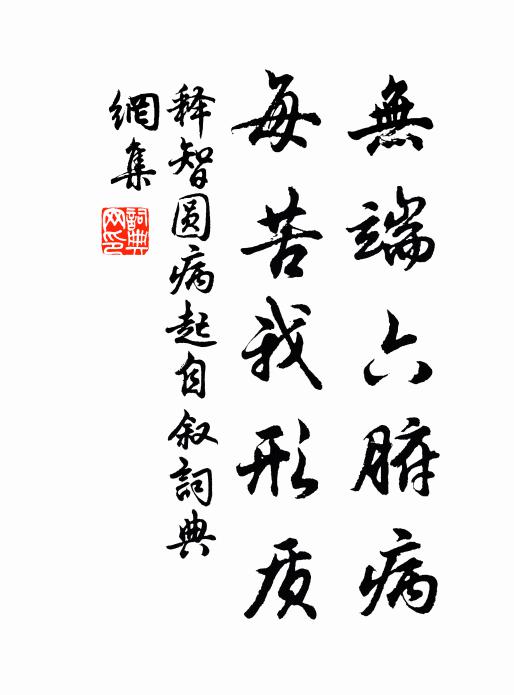 無端六腑病
每苦我形质
释智圆病起自叙詞典
網集
詞典网印